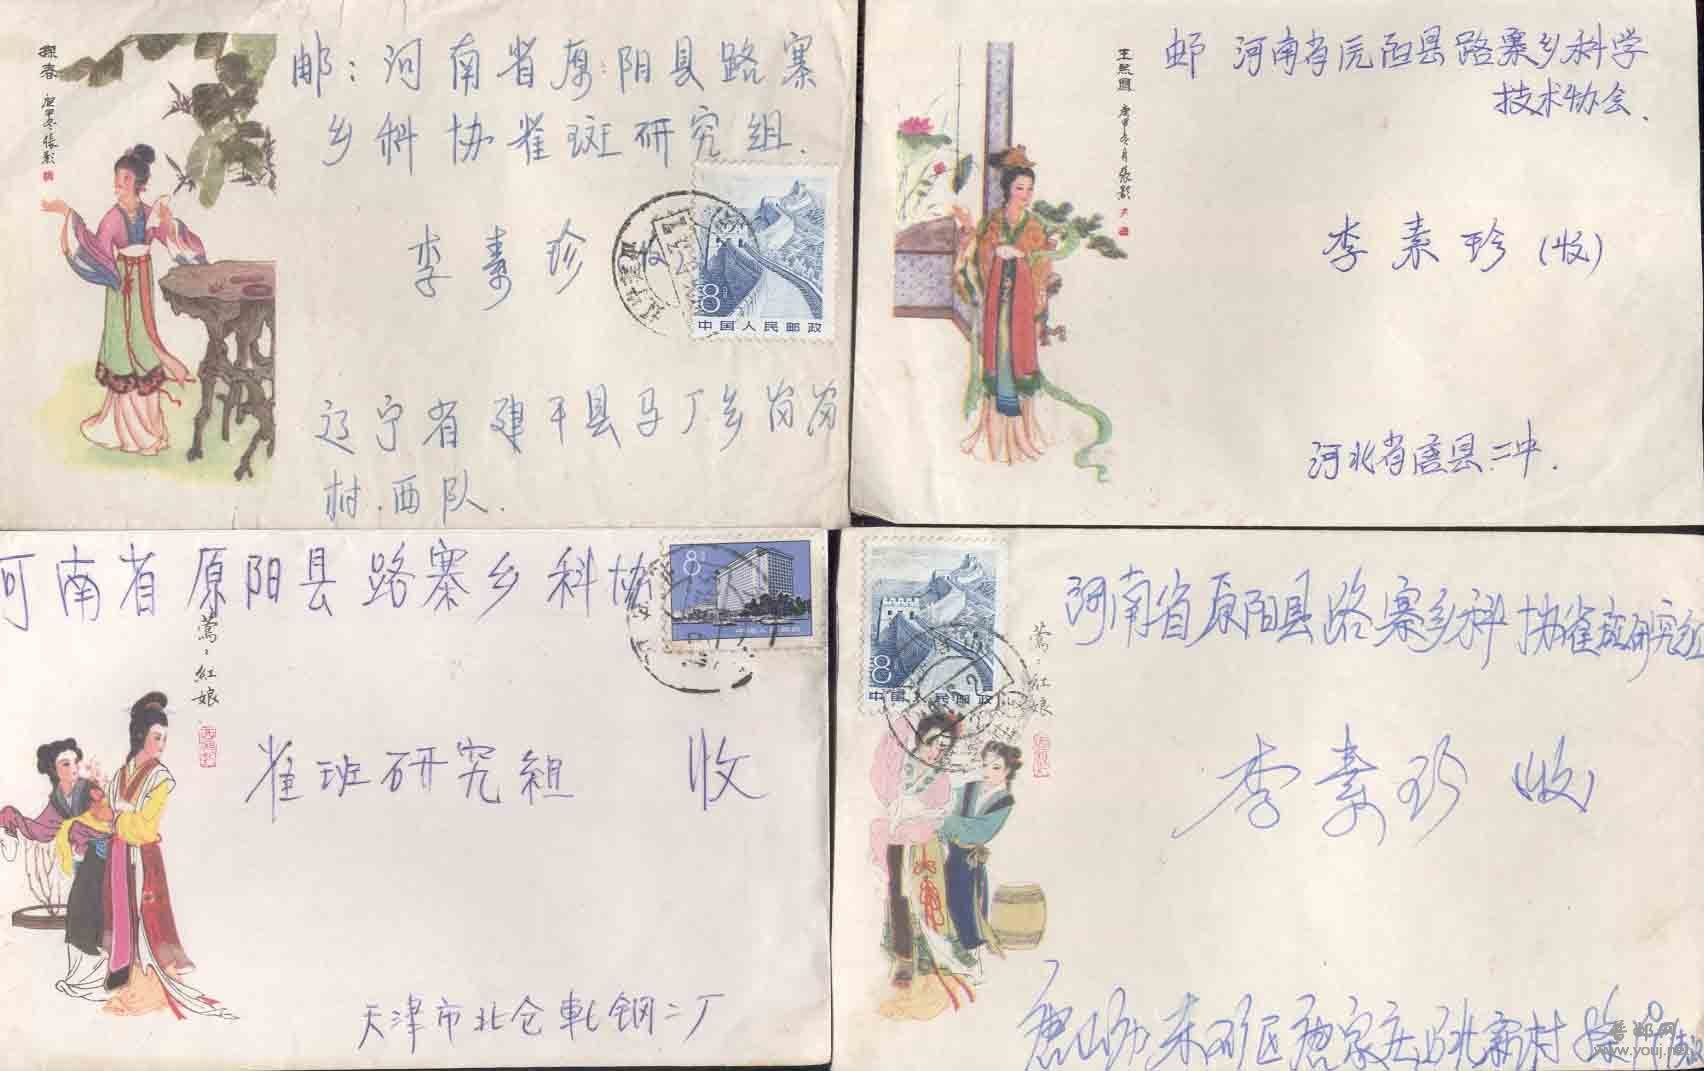 探春
庚申冬 張彭
邮：河南省原阳县路寨
乡科协雀斑研究组.
李素珍 收
8
中国人民邮政
辽宁省建平县马厂乡岗岗
村.西队.
王熙鳳
庚申冬月 張彭
邮 河南省阮阳县路寨乡科学
技术协会.
李素珍(收)
河北省唐县二中.
河南省原阳县路寨乡科协
8
鶯：紅娘
雀班研究组 收
天津市北仓軋钢二厂
河南省原阳县路寨乡科协雀斑研究组
8
中国人民邮政
鶯：紅娘
李素珍 收
唐山市东矿区唐家庄北新村
www.youj.net